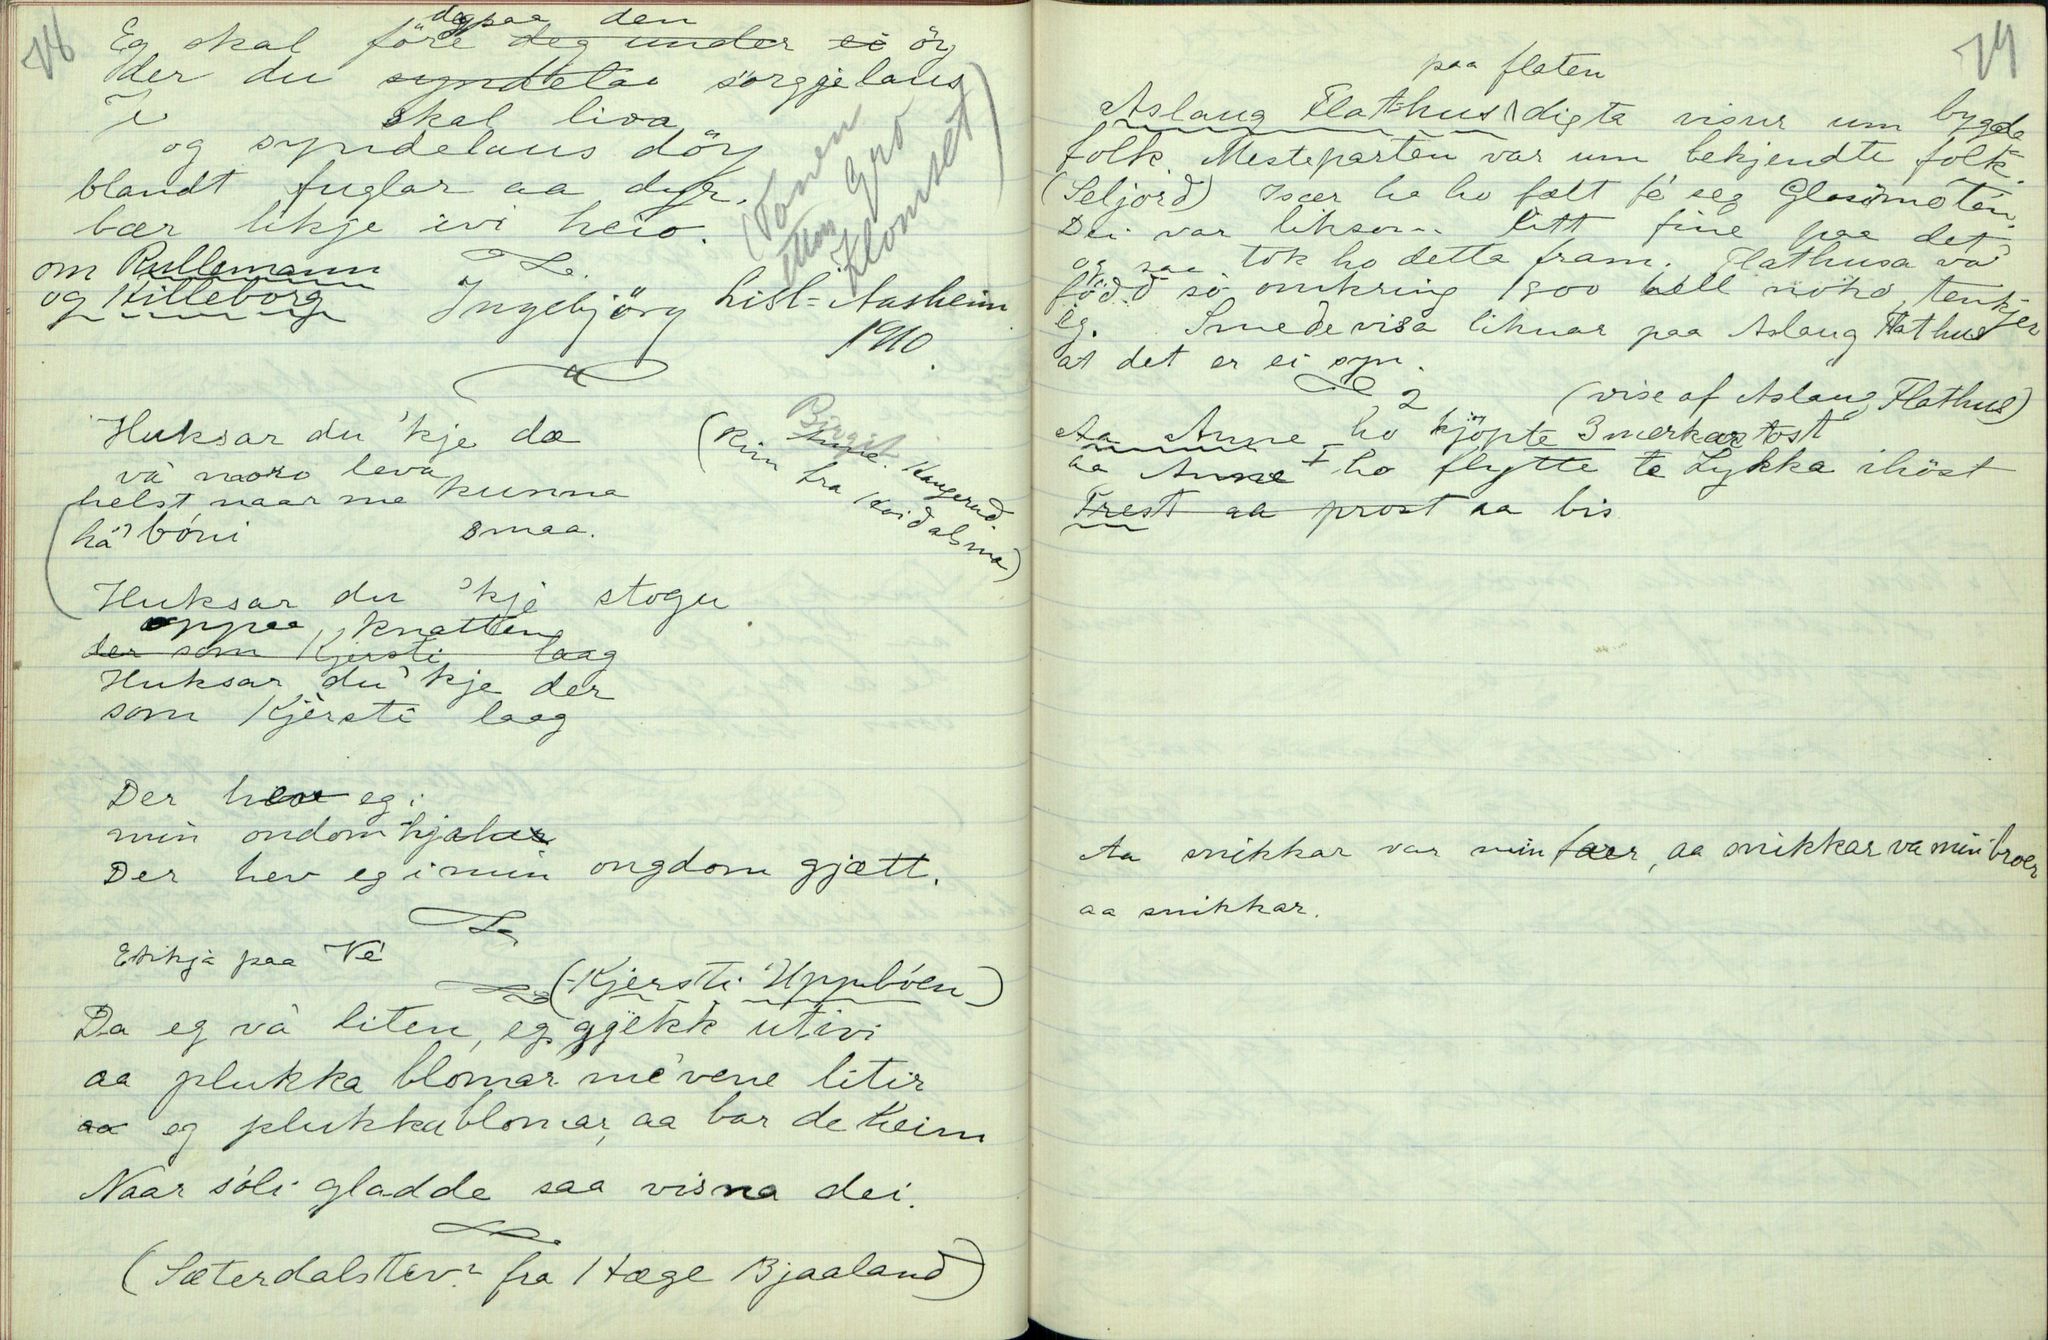 76
deg paa den
Eg skal före deg under ei öy
der du syndelau sorggjelaus
skal liva
og syndelaus döy
blandt fuglar aa dyr.
bær likje ivi heio.
(Tonen etter Gro Klomset)
om Rullemann
og Hilleborg
Ingebjörg Lisl=Aasheim
1910.
Huksar du 'kje dæ
va' moro leva
helst naar me kunna
há bóni smaa.
(Rim Anne. Birgit Haugerud
fra Hvidalsmo)
Huksar du 'kje stogu
oppaa knatten
der som Kjersti laag
Huksar du 'kje der
som Kjersti laag
Der hev eg i
min ondom hjalar
Der hev eg i min ongdom gjætt.
Ettikja paa Vé
(Kjersti Uppebóen)
Da eg va' liten, eg gjekk utivi
aa plukka blomar me' vene litir
aa eg plukka blomar, aa bar de heim
Naar sóli gladde saa visna dei.
(Sæterdalstev fra Hæge Bjaaland)
paa flaten
Aslaug Flat=hus digta visur um bygda
folk. Mesteparten var um bekjendte folk.
(Seljord) Især ha ho fælt fé seg Glosimoten.
Dei var liksom litt fine paa det
og saa tok ho detta fram. Flathusa va'
född so omkring 1800 kell noko, tenkjer
eg. Smedevisa liknar paa Aslaug Flathus
at det er ei syn.
2 (vise af Aslaug Flathus)
Aa Anne ho kjöpte 3 merkar tost
aa Anne ho flytte te Lykka ihöst
Frest aa prost aa bis
Aa snikkar var min faer, aa snikkar va min broer
aa snikkar.